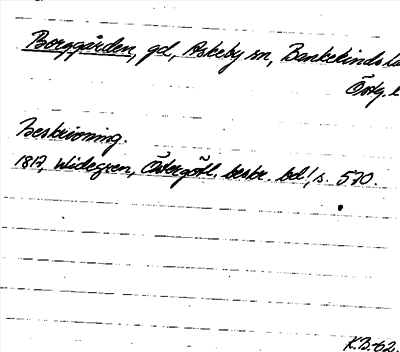 Borggården, gd, Askeby sn, Bankekinds
Östg.
Beskrivning.
1817, Widegren, Östergötl. beskr. bd 1, s. 570.
K.B.-62.